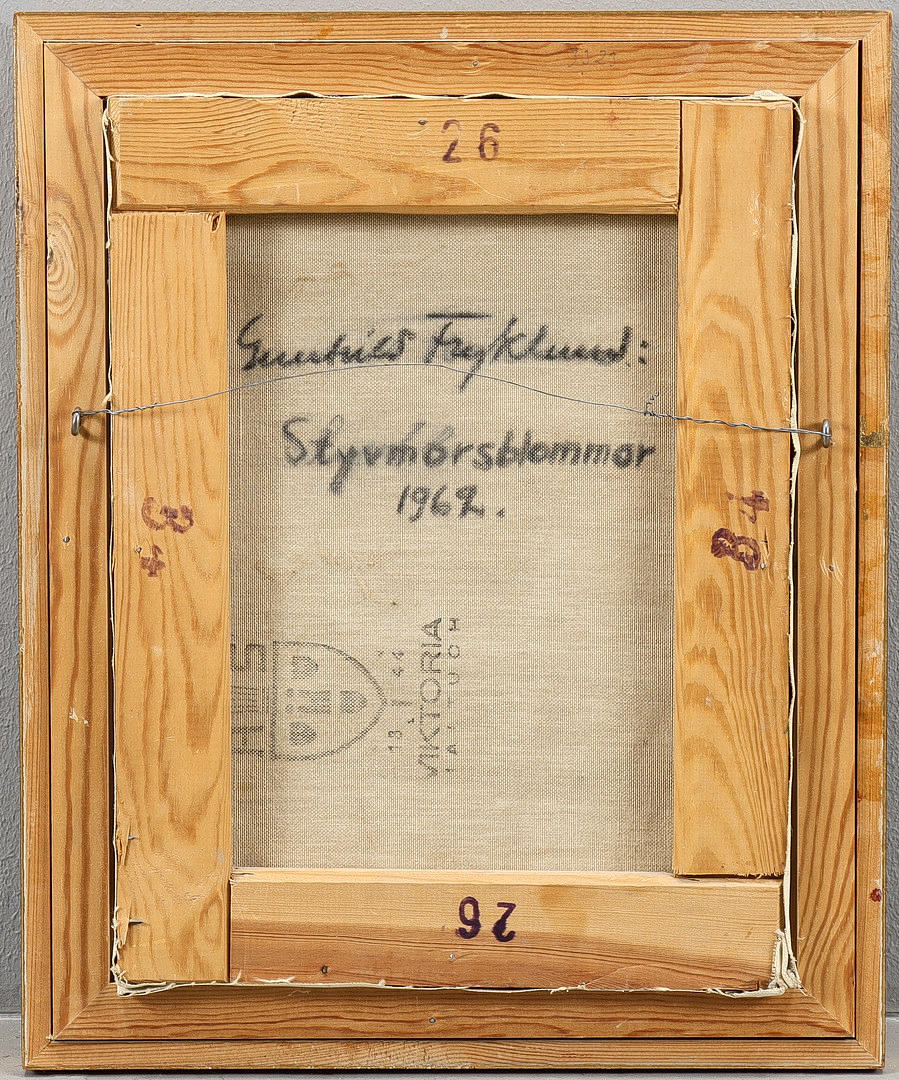 26
Gunhild Fryklund:
Styvmorsblommor
1962.
34
84
13 1 44
VIKTORIA
26